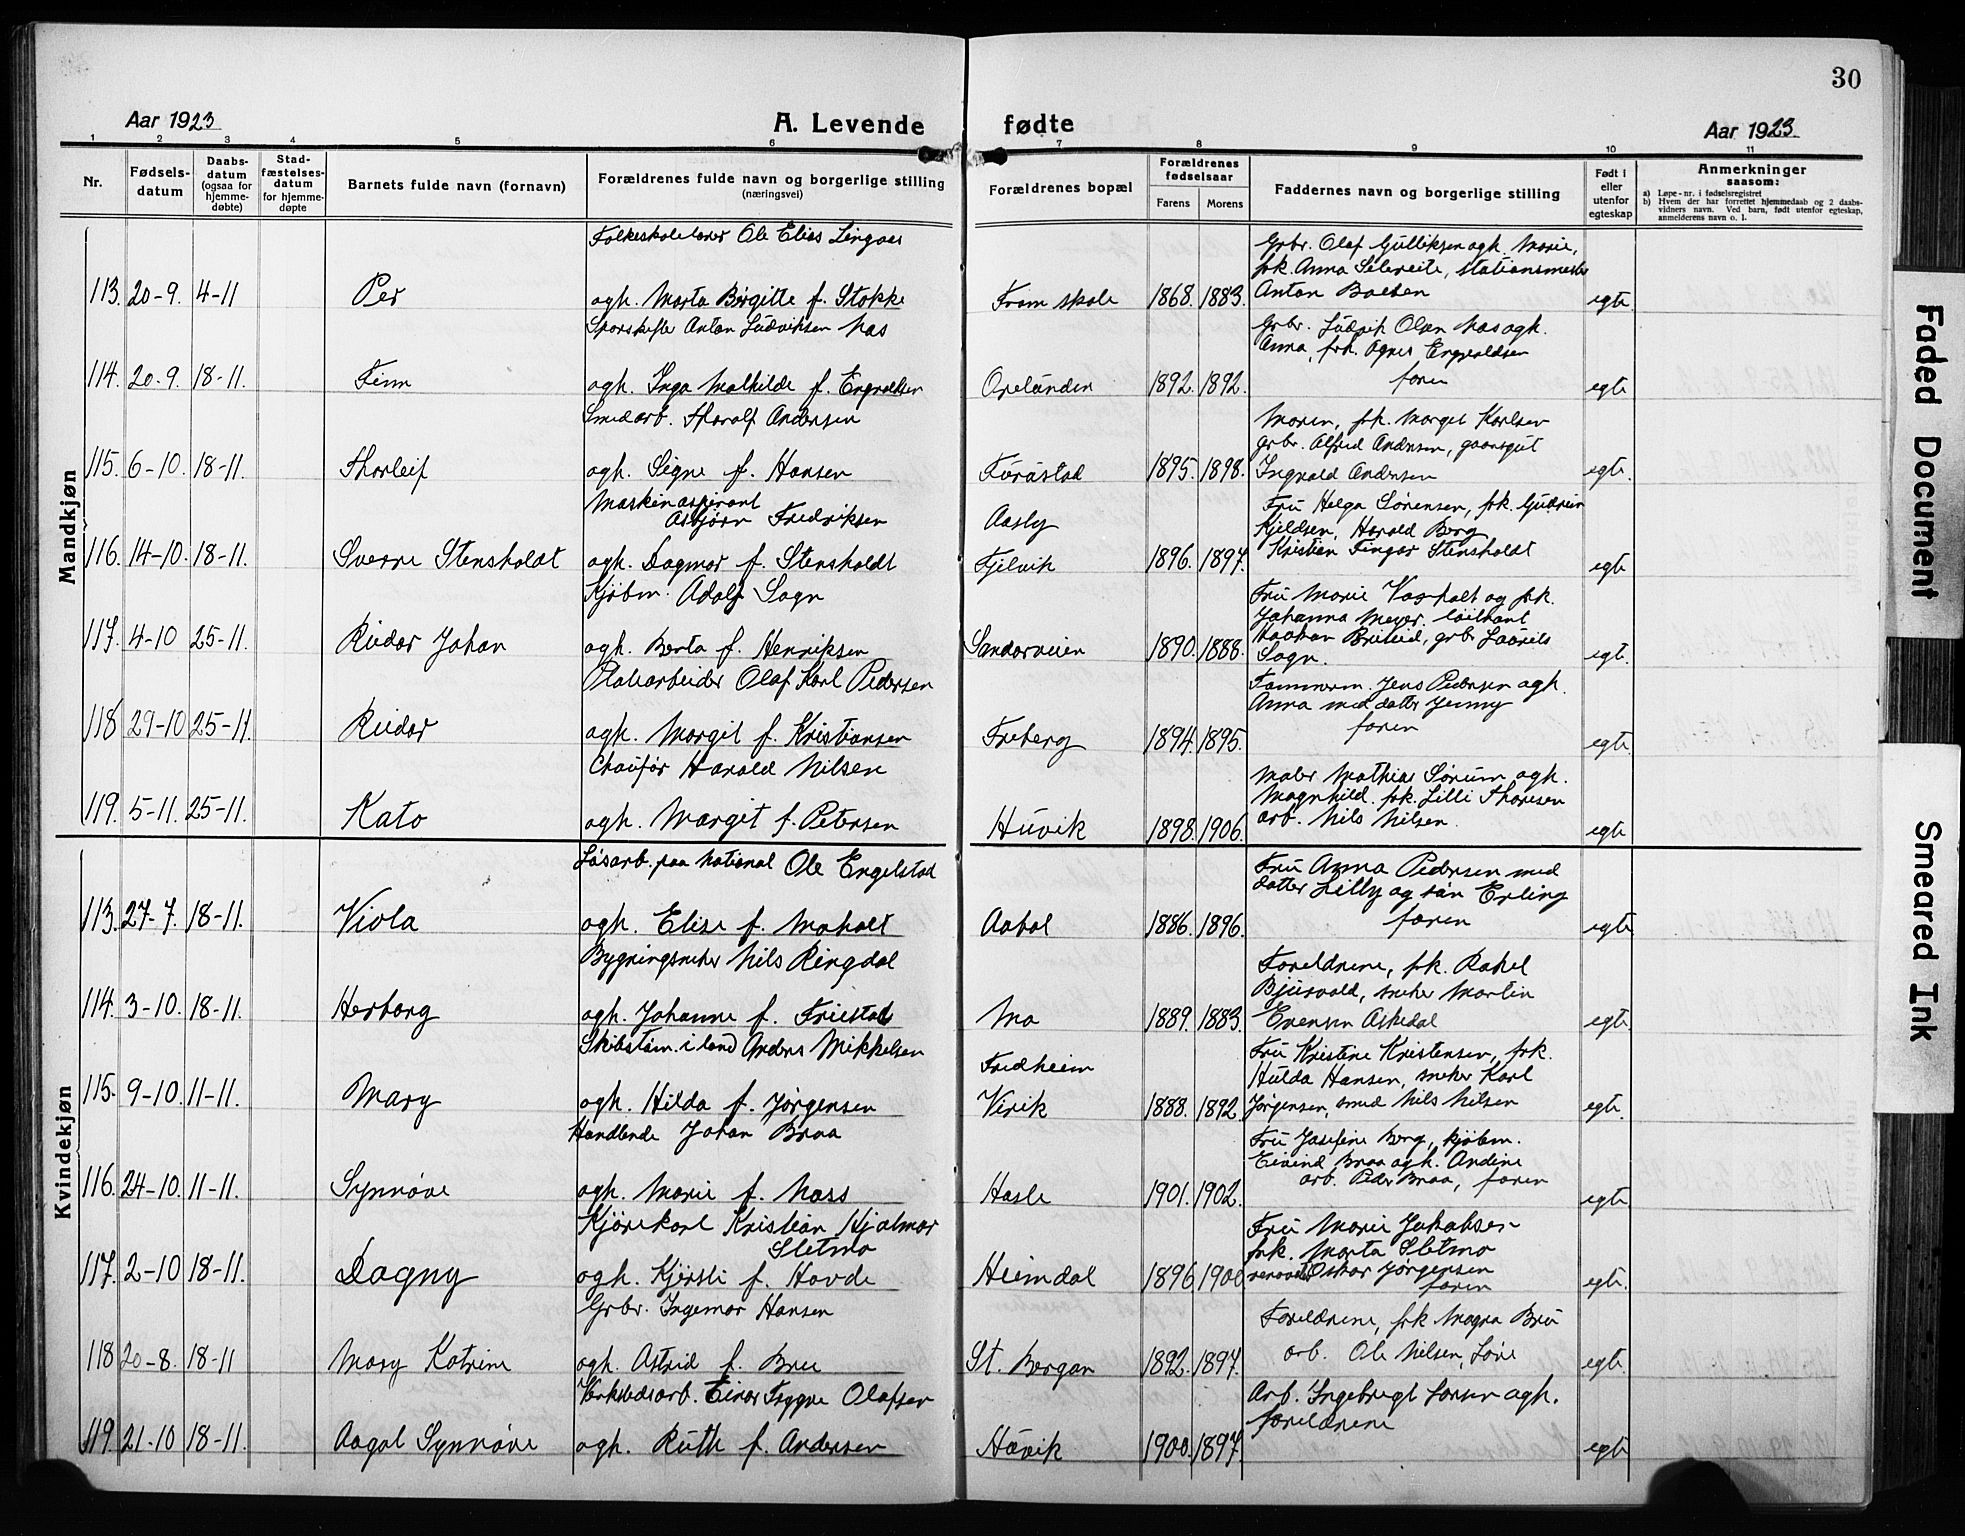 30
Aar 1923
A. Levende fødte
Aar 1923
1 2 3 4 5 6 7 8 9 10 11
Nr.
Fødsels-
datum
Daabs-
datum
(ogsaa for
hjemme-
døbte)
Stad-
fæstelses-
datum
for hjemme-
døpte
Barnets fulde navn (fornavn)
Forældrenes fulde navn og borgerlige stilling
(næringsvei)
Forældrenes bopæl
Forældrenes
fødselsaar
Farens Morens
Faddernes navn og borgerlige stilling
Født i
eller
utenfor
egteskap
Anmerkninger
saasom:
a) Løpe-nr. i fødselsregistret
b) Hvem der har forrettet hjemmedaab og 2 daabs-
vidners navn. Ved barn, født utenfor egteskap,
anmelderens navn o. l.
Mandkjøn
Folkeskolelærer Ole Elias Lingaas
Grbr. Olaf Gulliksen agh. Marie,
frk. Anna Selereite, stationsmester
113. 20-9. 4-11 Per agh. Marta Børgitte f. Stokke Fram skole 1868. 1883. Anton Baeben egte.
Sporskifter Anton Ludviksen Nas
Grbr. Ludvik Olsen Nas agh.
Anna, frk. Agnes Engvaldsen
114. 20-9. 18-11. Finn agh. Inga Mathilde f. Engvaldsen Ørelunden 1892. 1892. faren egte
Smedarb. Tharalf Andersen
Moren, frk. Margit Karlsen
Grbr. Alfred Andersen, gaardsgut
115. 6-10. 18-11. Thorleif agh. Signe f. Hansen Furustad 1895. 1898. Ingvald Andersen egte.
Maskinaspirant
Asbjørn Fredriksen
Aasly
Fru Helga Sørensen, frk. Gudrun
Kjeldsen, Harald Berg
116. 14-10. 18-11. Sverre Stensholdt agh. Dagmar f. Stensholdt Fjelvik 1896. 1897. Kristian Fingar Stensholdt egte
Kjøbm. Adolf Sogn
Fru Marie Vagholt og frk.
Johanna Meyer. løitnant
Haakon Breleid, grbr Laurits
117. 4-10 25-11. Reidar Johan agh. Berta f. Henriksen Sandarveien 1890. 1888. Sogn. egte.
Platearbeider Olaf Karl Pedersen
Tømmerm. Jens Pedersen agh.
Anna med datter Jenny
118 29-10 25-11. Reidar agh. Margit f. Kristiansen Freberg 1894. 1895. faren egte.
Chaufør Harald Nilsen
Maler Mathias Sørum agh.
Magnhild. frk. Lilli Thoresen
119. 5-11. 25-11. Kato agh. Margit f. Petersen Huvik 1898. 1906. arb. Nils Nilsen. egte
Kvindekjøn
Løsarb. paa National Ole Engelstad
Fru Anna Pedersen med
datter Lilly og søn Erling
113. 27-7. 18-11. Viola agh. Elise f. Moholt Aabol 1886. 1896. faren egte
Bygningsneker Nils Ringdal
Foreldrene, frk. Rakel
Bjurvald, sneker Martin
114. 3-10. 18-11. Herborg agh. Johanne f. Friestad Mo 1889. 1883. Evensen Askedal egte
Skibstøm. i land Anders Mikkelsen
Fredheim
Fru Kristine Kristensen, frk.
Hulda Hansen, sneker Karl
115. 9-10. 11-11. Mary agh. Hilda f. Jørgensen Virik 1888. 1892 Jørgensen, smed Nils Nilsen egte.
Handlende Johan Braa
Fru Josefine Berg, kjøbm.
Eivind Braa agh. Andine
116. 24-10. 11-11. Synnøve agh. Marie f. Mass Hasle 1901. 1902. arb. Peder Braa, faren egte
Kjørekarl Kristian Hjalmar
Sletmo
Fru Marie Jakobsen
frk. Marta Sletmo
117. 2-10 18-11. Dagny agh. Kjersti f. Hovde Heimdal 1896 1900 Oskar Jørgensen egte.
faren
Grbr. Ingemar Hansen
Foreldrene, frk Magna Bru
118 20-8. 18-11 Mary Katrine agh. Astrid f. Bru St. Bergan 1892. 1897. arb. Ole Nilsen, Løve egte
Verkstedsarb. Einar Trygve Olafsen
Arb. Ingebregt Larsen agh.
foreldrene
119. 21-10 18-11. Aagot Synnøve agh. Ruth f. Andersen Huvik 1900. 1897. egte
Faded Document
Smeared Ink